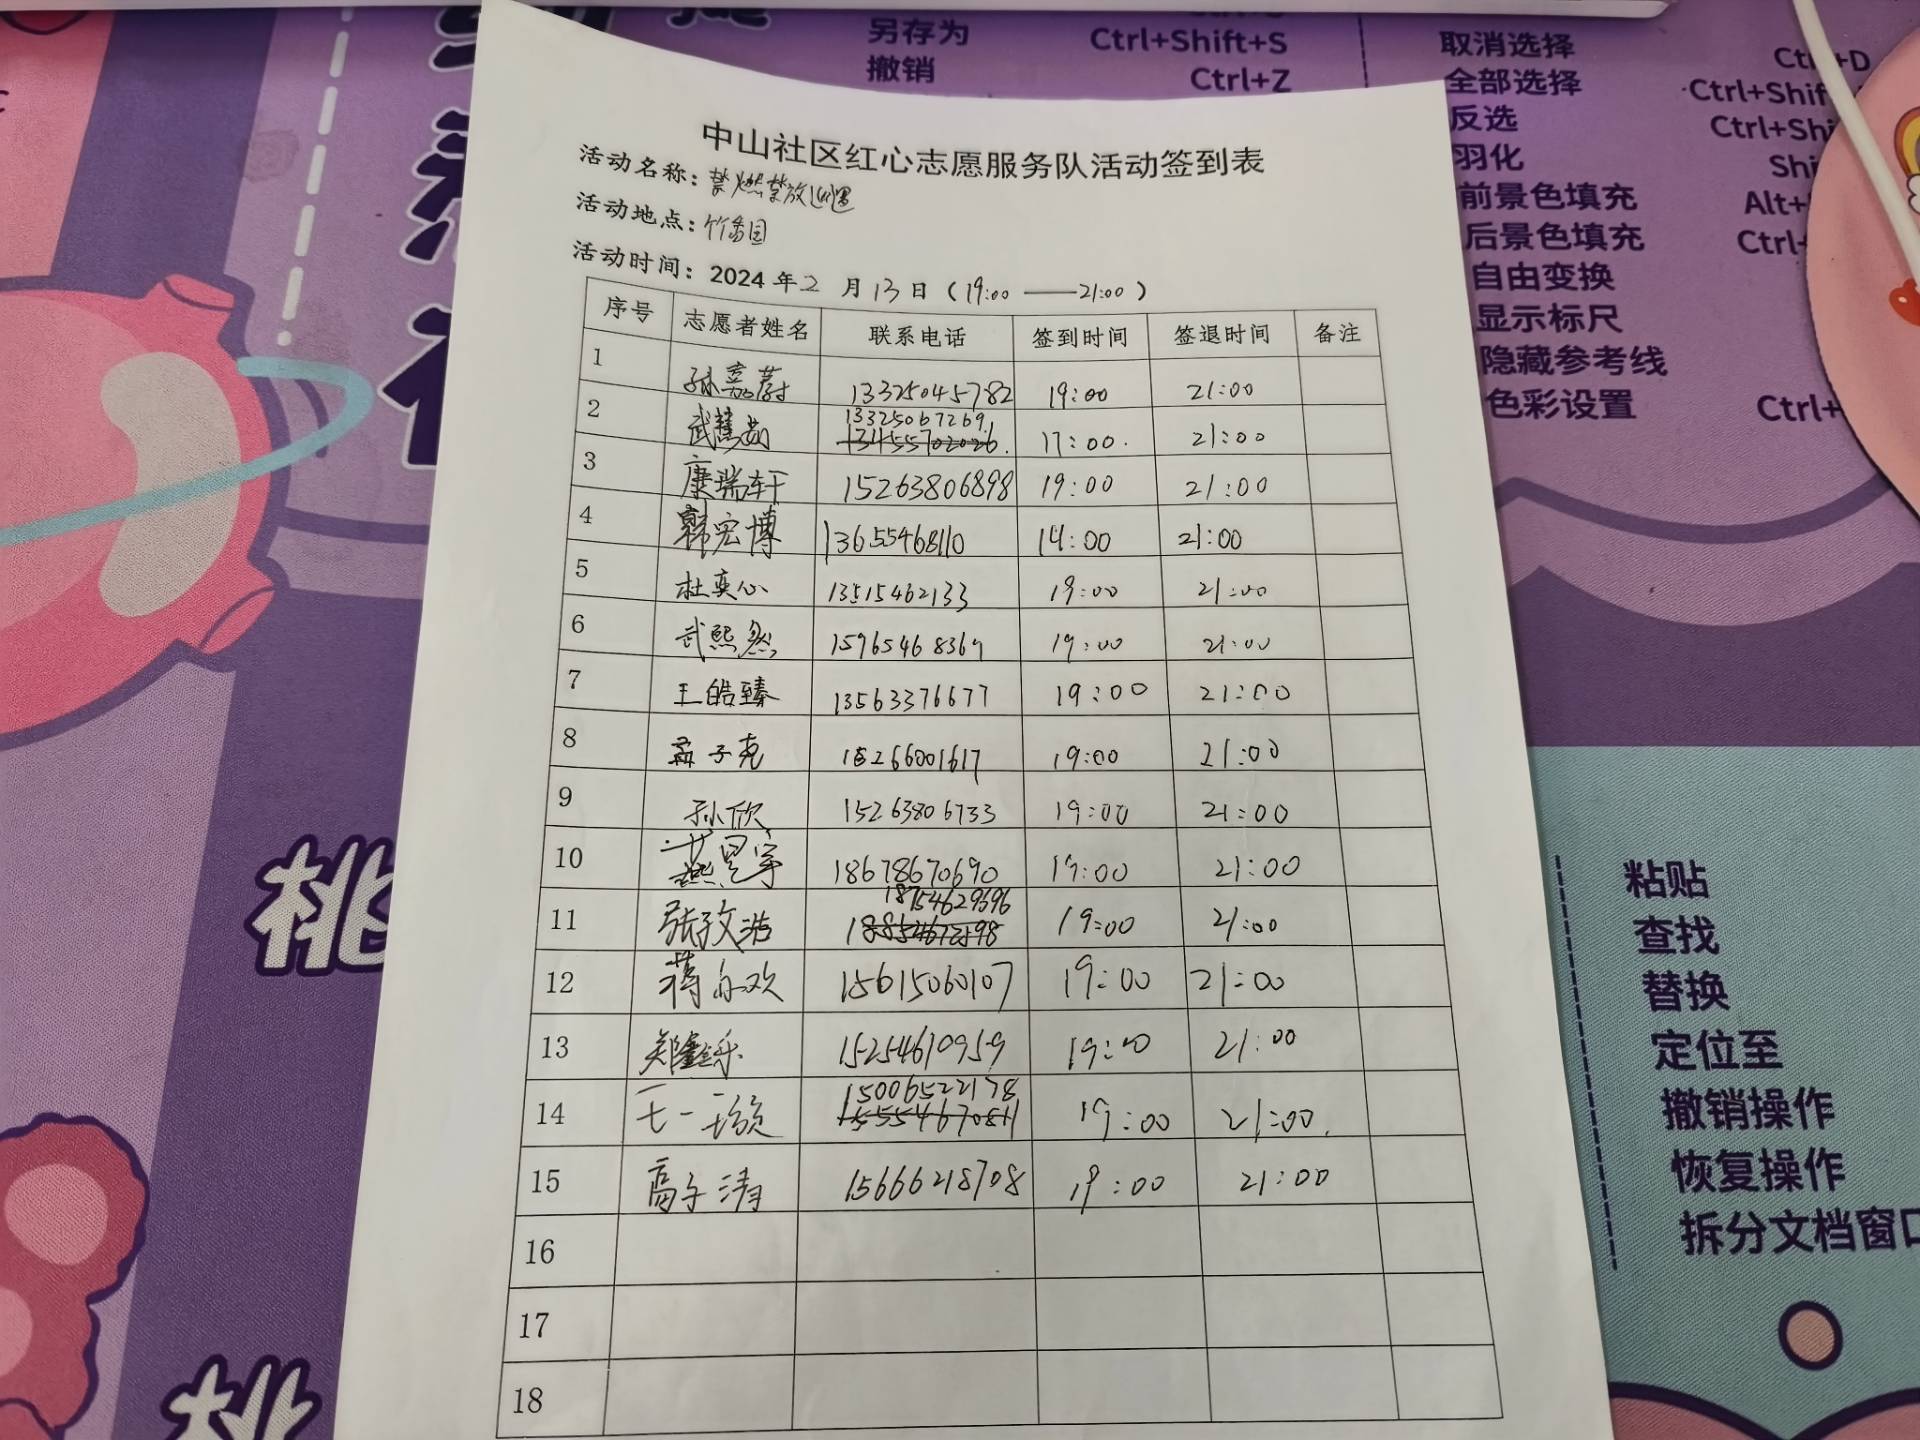 另存为 Ctrl+Shift+S
撤销 Ctrl+Z
取消选择
全部选择
反选
羽化
前景色填充
后景色填充
自由变换
显示标尺
隐藏参考线
色彩设置
中山社区红心志愿服务队活动签到表
活动名称：禁燃禁放巡逻
活动地点：竹香园
活动时间：2024年2月13日（19:00——21:00）
序号 志愿者姓名 联系电话 签到时间 签退时间 备注
1 孙嘉蔚 13325045782 19:00 21:00
2 13325067269 17:00. 21:00
3 康瑞轩 15263806898 19:00 21:00
4 韩宏博 13655468110 21:00
5 杜奕心 13515462133 19:00 21:00
6 武熙然 19:00 21:00
7 王皓臻 13563376677 19:00 21:00
8 孟子尧 15266001617 19:00 21:00
9 孙欣 15263806733 19:00 21:00
10 18678670690 19:00 21:00
11 18754629696 19:00 21:00
12 15615060107 19:00 21:00
13 15254610959 19:00 21:00
14 15006522178 19:00 21:00.
15 高子清 15666218708 19:00 21:00
16
17
18
桃
粘贴
查找
替换
定位至
撤销操作
恢复操作
拆分文档窗口